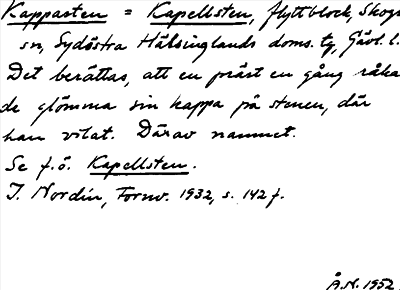 Kappasten = Kapellsten, flyttblock, Skogs
sn, Sydöstra Hälsinglands doms. tg, Gävl. l.
Det berättas, att en präst en gång råka-
de glömma sin kappa på stenen, där
han vilat. Därav namnet.
Se f.ö. Kapellsten.
J. Nordin, Fornv. 1932, s. 142 f.
Å.N. 1952.